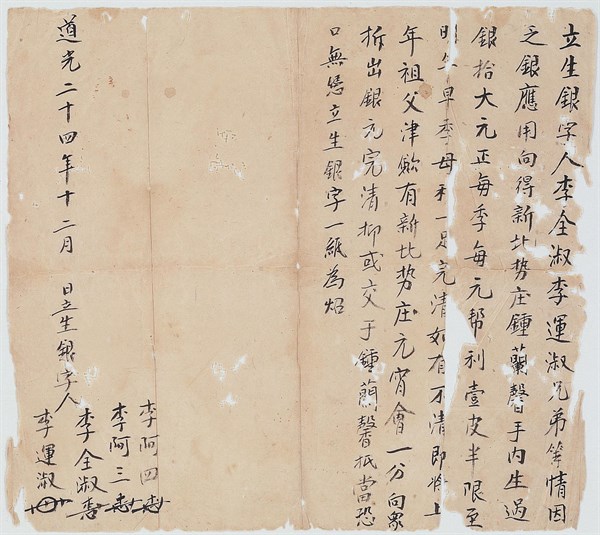 立生銀字人李全淑李運淑兄弟等情因
乏銀應用向得新北势庄鍾蘭馨手內生過
銀拾大元正每季每元帮利壹皮半限至
明年早季母利一足完清如有不清即将上
年祖父津飲有新北势庄元宵會一分向衆
拆出銀元完清抑或交于鍾蘭馨抵當恐
口無憑立生銀字一紙為炤
道光二十四年十二月 日立生銀字人
李阿四
李阿三
李全淑
李運淑